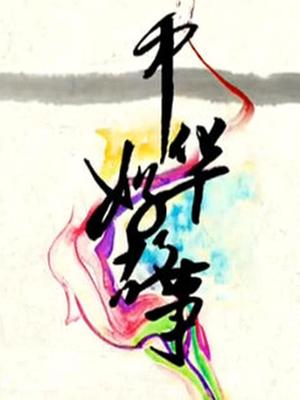 中华好故事